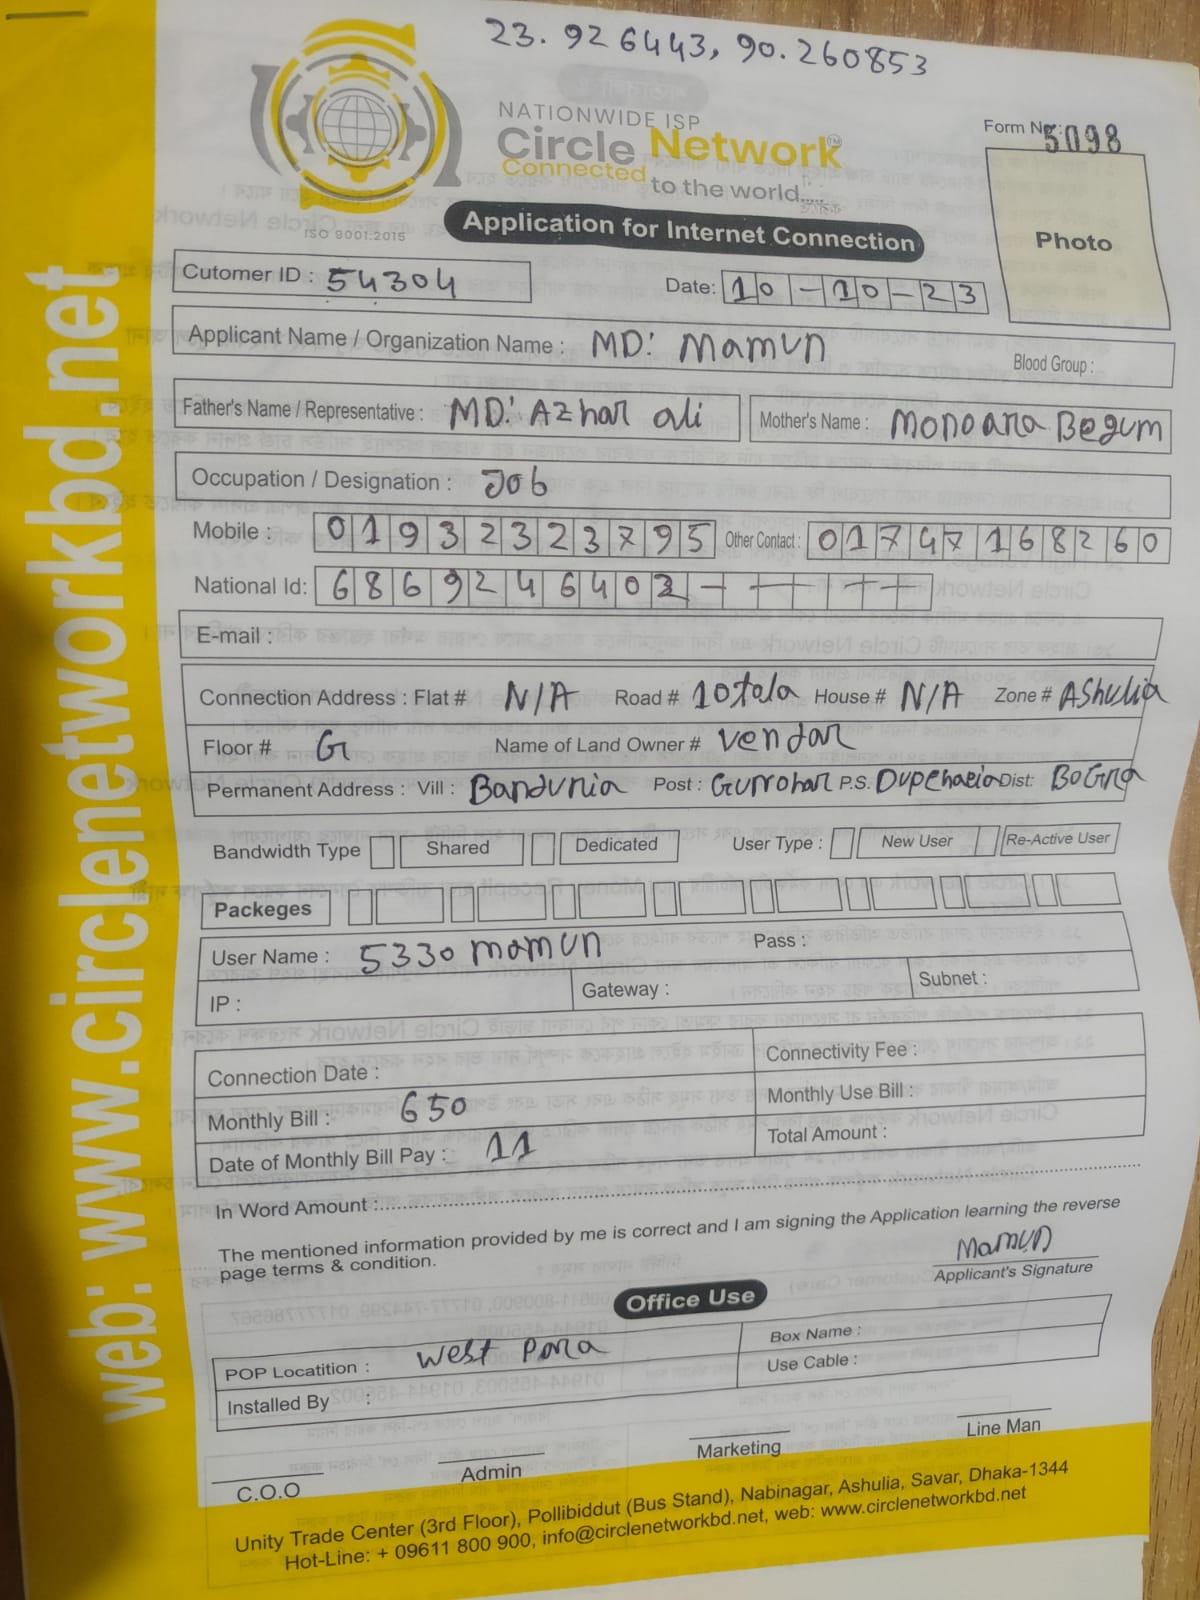 23.926443, 90.260853
NATIONWIDE ISP
Circle Network™
Connected to the world.....
ISO 9001:2015
Form No: 5098
Application for Internet Connection
Photo
Cutomer ID : 54304
Date: 10-10-23
Applicant Name / Organization Name : MD: Mamun
Blood Group :
Father's Name / Representative : MD: Azhar ali
Mother's Name : Monoara Begum
Occupation / Designation : Job
Mobile : 01932323795 Other Contact : 01747168260
National Id: 6869246402
E-mail :
Connection Address : Flat # N/A Road # 10tala House # N/A Zone # AShulia
Floor # G Name of Land Owner # Vendar
Permanent Address : Vill : Bandunia Post : Gurrohar P.S. Dupchacia Dist: BoGra
Bandwidth Type Shared Dedicated User Type : New User Re-Active User
Packeges
User Name : 5330mamun Pass :
IP : Gateway : Subnet :
Connection Date : Connectivity Fee :
Monthly Bill : 650 Monthly Use Bill :
Date of Monthly Bill Pay : 11 Total Amount :
In Word Amount :
The mentioned information provided by me is correct and I am signing the Application learning the reverse
page terms & condition.
Mamun
Applicant's Signature
Office Use
POP Locatition : West Para Box Name :
Installed By : Use Cable :
C.O.O Admin Marketing Line Man
Unity Trade Center (3rd Floor), Pollibiddut (Bus Stand), Nabinagar, Ashulia, Savar, Dhaka-1344
Hot-Line: + 09611 800 900, info@circlenetworkbd.net, web: www.circlenetworkbd.net
web: www.circlenetworkbd.net